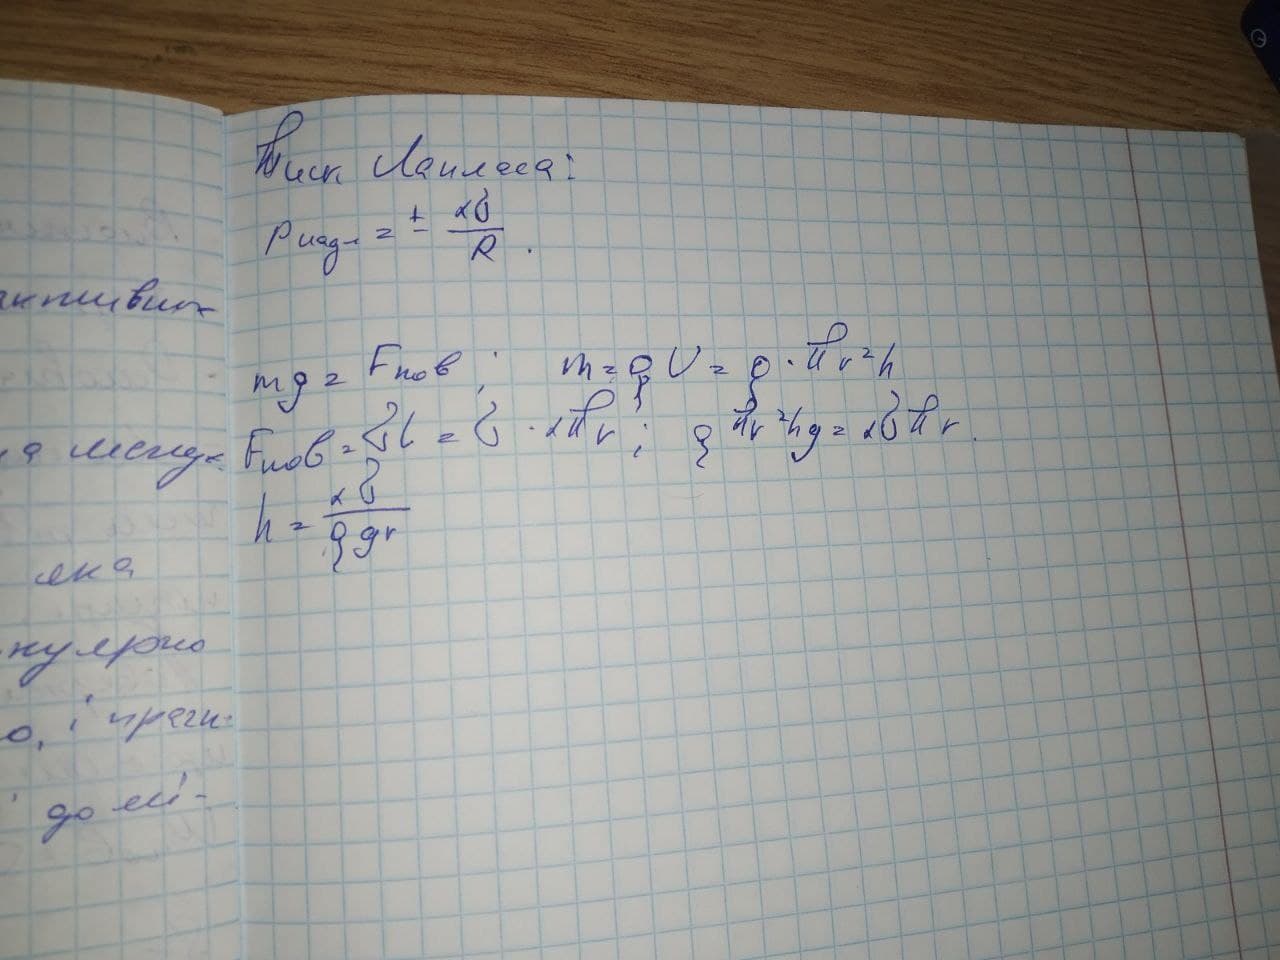 активних
а менж
яка
нулярно
о, і прагн-
і до мі-
Тиск Лапласа:
Pнадл = ± 2σ/R.
mg = Fпов; m = ρV = ρ · πr²h
Fпов = σl = σ · 2πr; ρπr²hg = 2σπr.
h = 2σ/ρgr